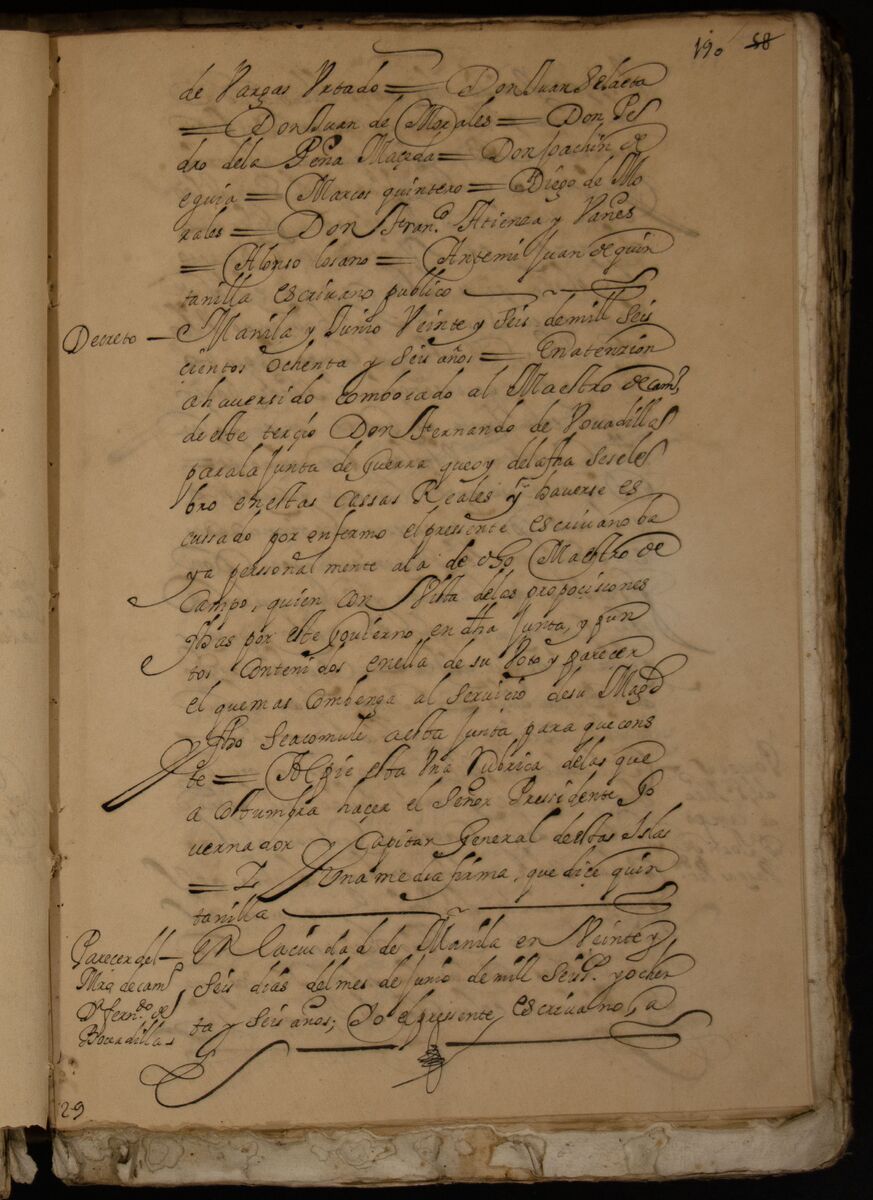 190 58
de Vargas Vrtado = Don Juan de laeta
= Don Juan de Morales = Don Pe
dro dela Peña = Don Joachin de
eguia = Marcos quintero = Diego de Mo
rales = Don Fran.co Atienza y Vañes
= Alonso losano = Antemi Juan de quin
tanilla escriuano publico
Decreto — Manila y Junio Veinte y seis de mill seis
cientos ochenta y seis años = En atenzion
a hauersido combocado al Maestro de camp.
de este tercio Don Fernando de Vouadilla
para la Junta de Guerra que oy dela fha se sele
bro en estas cassas Reales y hauerse es
cussado por enfermo el pressente escriuano ba
ya perssonalmente ala de dho Maestro de
Campo, quien con Vista delas propocisiones
fhas por este Gouierno, en dha Junta, y pun
tos contenidos enella de su Voto y parecer
el que mas combenga al seruicio desu Magd
se acomule a esta Junta para que cons
te = Al pie esta Vna Rubrica delas que
acostumbra hacer el Señor Pressidente Go
uernador Capitan General de estas Islas
= Y Vna media firma, que dice quin
tanilla
Parecer del
Mro de camp
Dn fern.do de
Bouadilla
En la ciudad de Manila en Veinte y
seis dias del mes de Junio de mill seis.s y ochen
ta y seis años; Yo el pressente escriuano, a
29